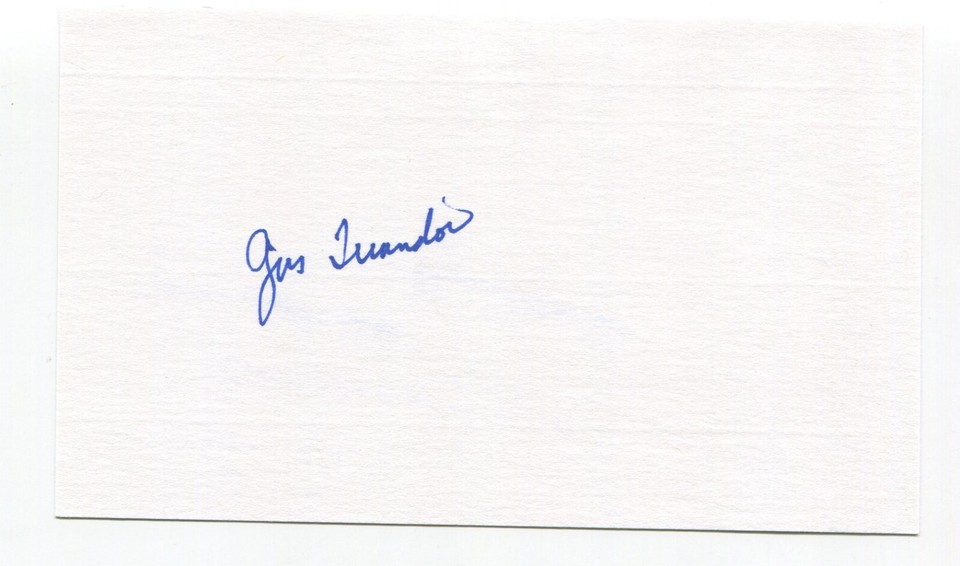 Gus Triandos